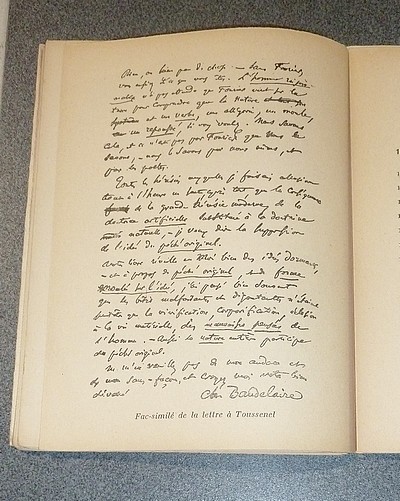 Rien, ou bien peu de chose. — Sans Fourier,
vous eussiez été ce que vous êtes. L'homme raison-
nable n'a pas attendu que Fourier vînt sur la
terre pour comprendre que la Nature
est un verbe, une allégorie, un moule,
un repoussé, si vous voulez. Nous savons
cela, et ce n'est pas par Fourier que nous le
savons, — nous le savons par nous-mêmes, et
par les poètes.
Toutes les hérésies auxquelles je faisais allusion
tout à l'heure ne sont après tout que la conséquence
de la grande hérésie moderne, de la
doctrine artificielle substituée à la doctrine
naturelle, — je veux dire la suppression
de l'idée du péché originel.
Votre livre réveille en moi bien des idées dormantes,
— et à propos de péché originel, et de forme
moulée sur l'idée, j'ai pensé bien souvent
que les bêtes malfaisantes et dégoûtantes n'étaient
peut-être que la vivification, corporification, éclosion
à la vie matérielle, des mauvaises pensées de
l'homme. — Aussi la nature entière participe
du péché originel.
Ne m'en veuillez pas de mon audace et
de mon sans-façon, et croyez moi votre bien
dévoué
Ch. Baudelaire
Fac-similé de la lettre à Toussenel